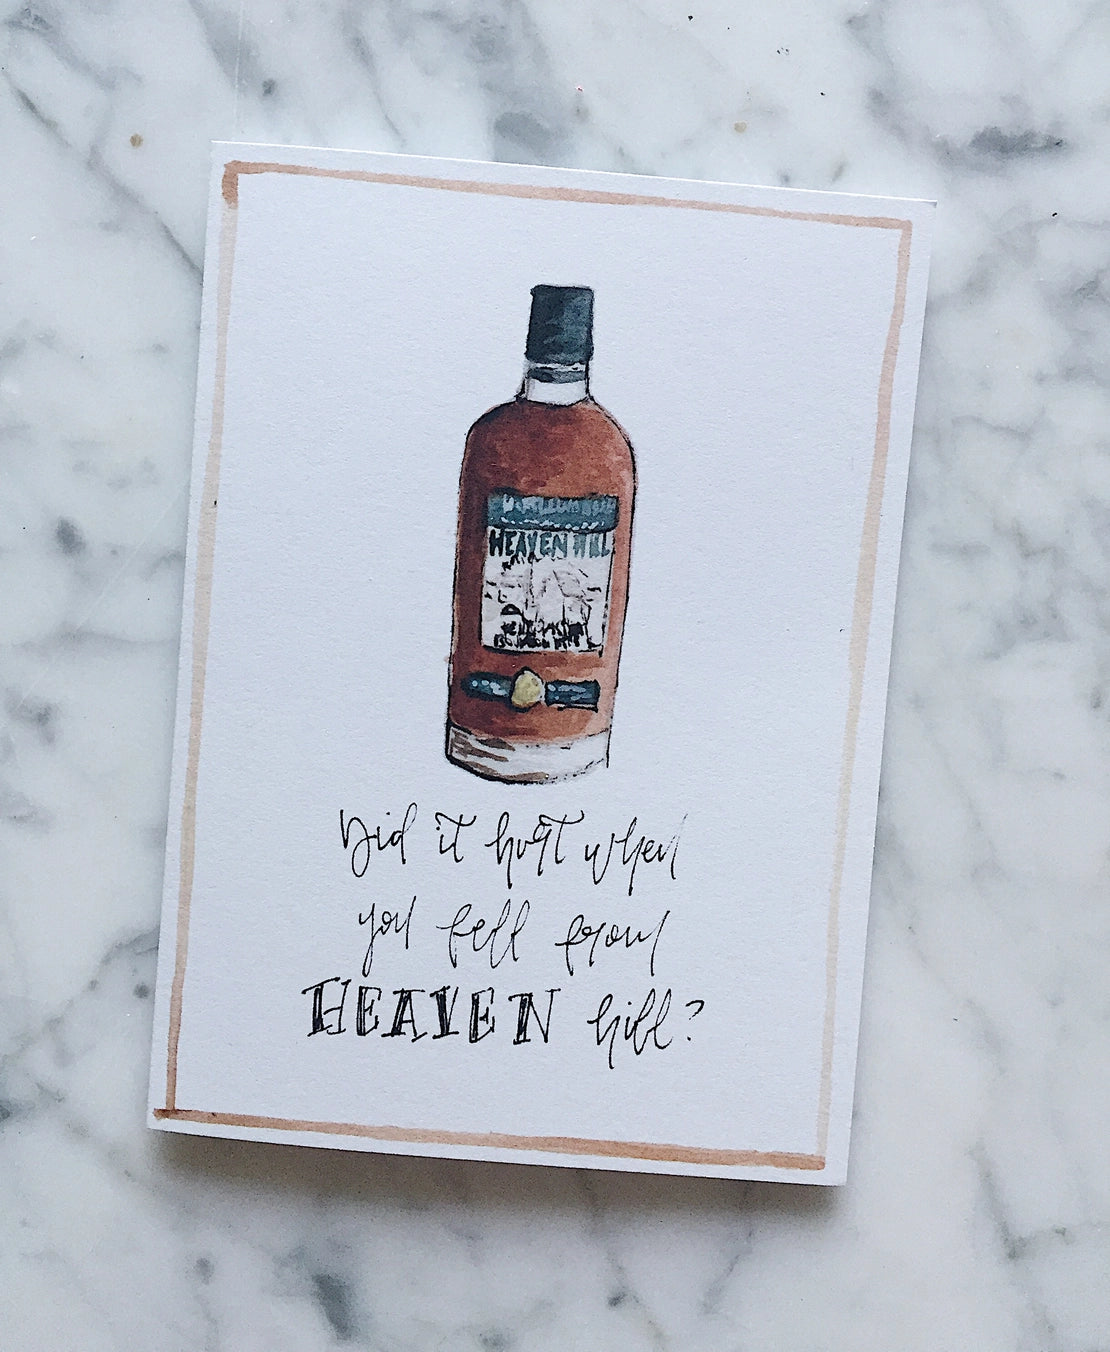 HEAVEN HILL
Did it hurt when
you fell from
HEAVEN hill?